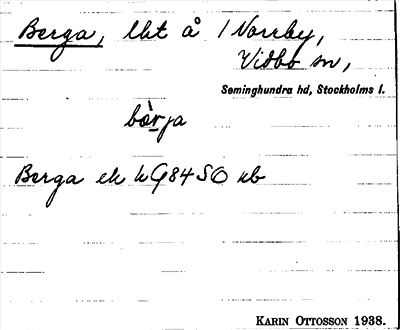 Berga, lht å / Norrby,
Vidbo sn,
Seminghundra hd, Stockholms l.
bà̀rja
Berga ek hG84SO kb
KARIN OTTOSSON 1938.